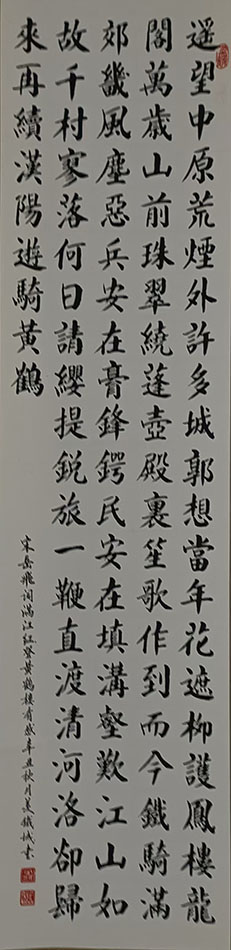 遥望中原荒煙外許多城郭想當年花遮柳護鳳樓龍
閣萬歲山前珠翠繞蓬壺殿裏笙歌作到而今鐵騎滿
郊畿風塵惡兵安在膏鋒鍔民安在填溝壑歎江山如
故千村寥落何日請纓提銳旅一鞭直渡清河洛卻歸
來再續漢陽遊騎黃鶴
宋岳飛詞滿江紅登黃鶴樓有感辛丑秋月